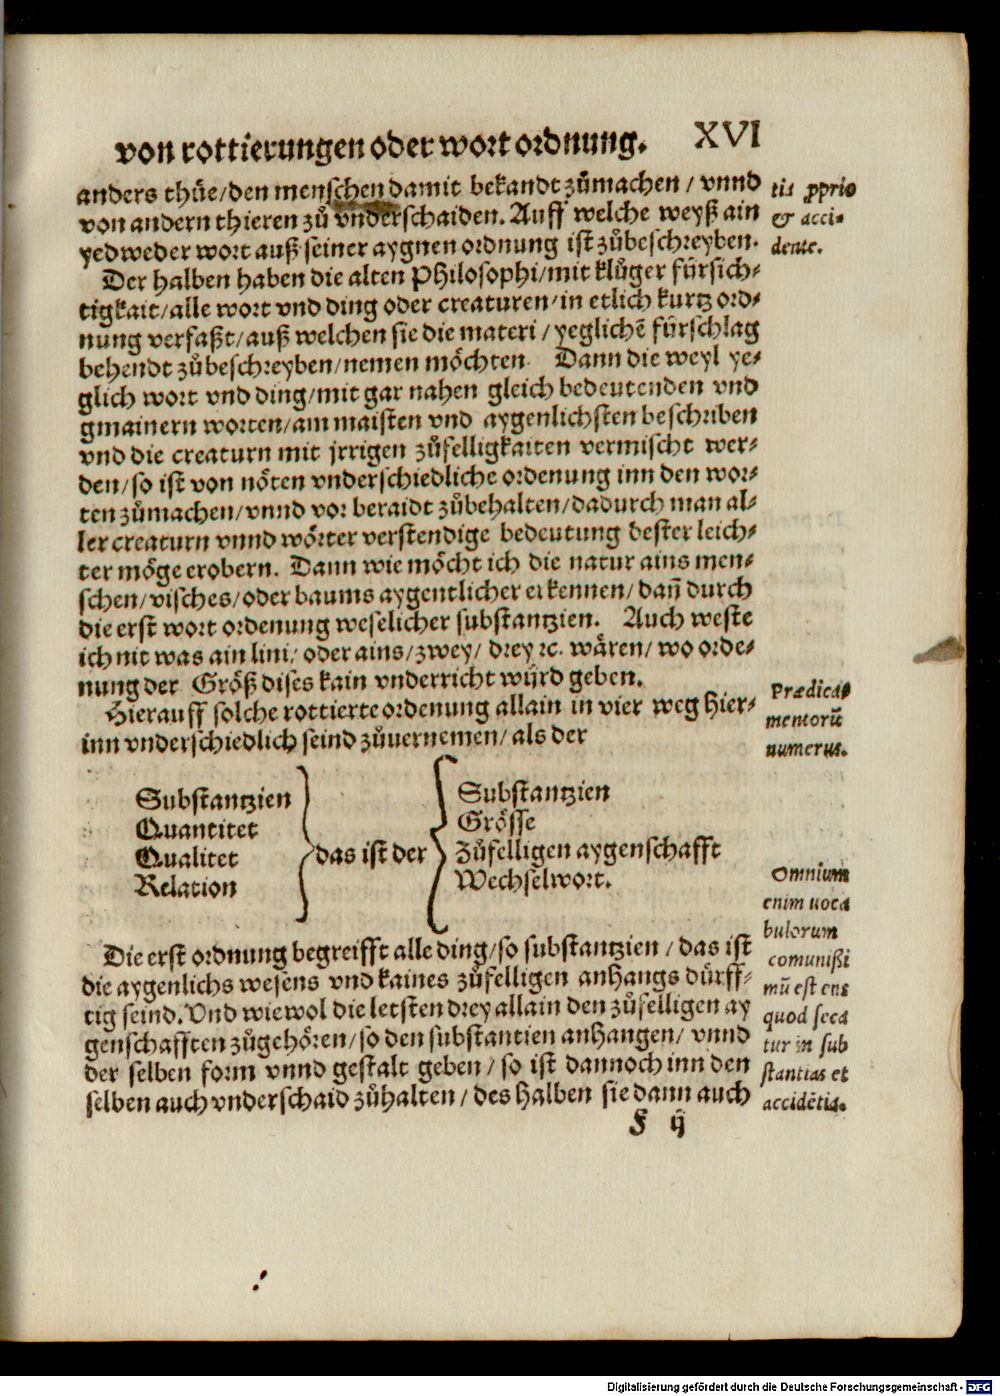 von rottierungen oder wort ordnung. XVI
anders thüe/den menschen damit bekandt zůmachen / vnnd
von andern thieren zů vnderschaiden. Auff welche weyß ain
yedweder wort auß seiner aygnen ordnung ist zůbeschreyben.
tis ꝓprio
& acci-
dente.
Der halben haben die alten Philosophi/mit klůger fürsich-
tigkait/alle wort vnd ding oder creaturen/in etlich kurtz ord-
nung verfaßt/auß welchen sie die materi / yeglichē fürschlag
behendt zůbeschreyben/nemen möchten. Dann die weyl ye-
glich wort vnd ding/mit gar nahen gleich bedeutenden vnd
gmainern worten/am maisten vnd aygenlichsten beschriben
vnd die creaturn mit jrrigen zůfelligkaiten vermischt wer-
den/so ist von nöten vnderschiedliche ordenung inn den wor-
ten zůmachen/vnnd vor beraidt zůbehalten/dadurch man al-
ler creaturn vnnd wörter verstendige bedeutung dester leich-
ter möge erobern. Dann wie möcht ich die natur ains men-
schen/visches/oder baums aygentlicher erkennen/dañ durch
die erst wort ordenung weselicher substantzien. Auch weste
ich nit was ain lini/ oder ains/zwey/ drey ꝛc. wären/ wo orde-
nung der Größ dises kain vnderricht würd geben.
Hierauff solche rottierte ordenung allain in vier weg hier-
inn vnderschiedlich seind zůuernemen/ als der
Prædica-
mentorū
numerus.
Substantzien
Quantitet
Qualitet
Relation
das ist der
Substantzien
Grösse
Zůfelligen aygenschafft
Wechselwort.
Die erst ordnung begreifft alle ding/so substantzien / das ist
die aygenlichs wesens vnd kaines zůfelligen anhangs dürff-
tig seind. Vnd wiewol die letsten drey allain den zůfelligen ay
genschafften zůgehören/so den substantien anhangen/ vnnd
der selben form vnnd gestalt geben / so ist dannoch inn den
selben auch vnderschaid zůhalten / des halben sie dann auch
Omnium
enim uoca
bulorum
comunißi
mū est ens
quod seca
tur in sub
stantias et
accidētia.
F ij
Digitalisierung gefördert durch die Deutsche Forschungsgemeinschaft - DFG